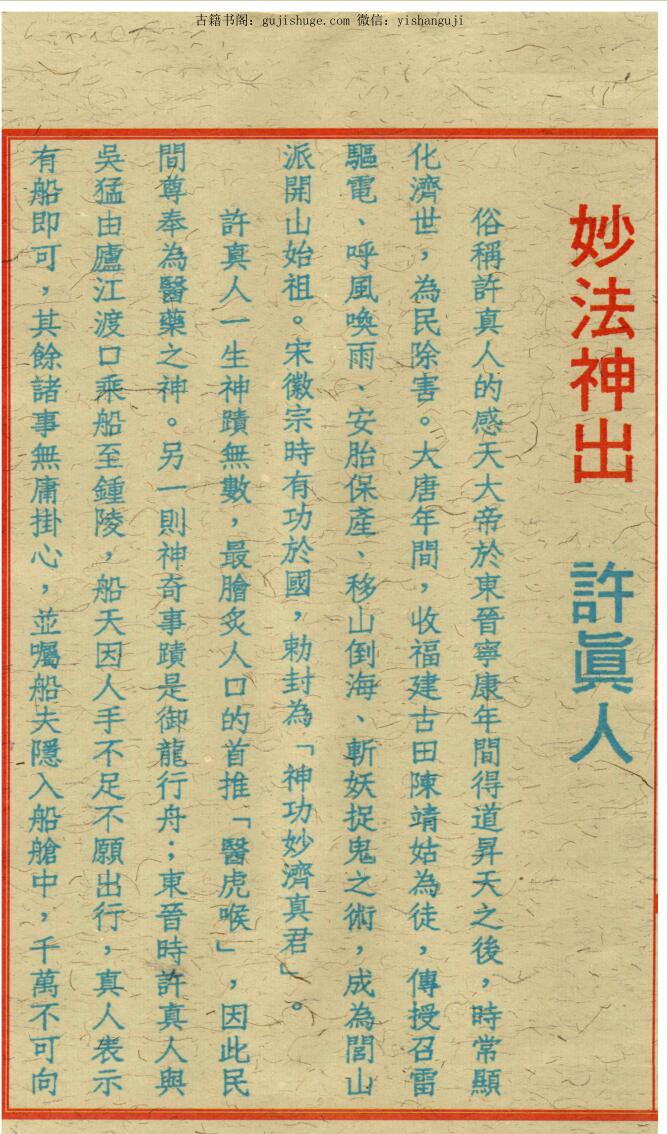 古籍书阁：gujishuge.com 微信：yishanguji
妙法神出 許眞人
俗稱許真人的感天大帝於東晉寧康年間得道昇天之後，時常顯
化濟世，為民除害。大唐年間，收福建古田陳靖姑為徒，傳授召雷
驅電、呼風喚雨、安胎保產、移山倒海、斬妖捉鬼之術，成為閭山
派開山始祖。宋徽宗時有功於國，勅封為「神功妙濟真君」。
許真人一生神蹟無數，最膾炙人口的首推「醫虎喉」，因此民
間尊奉為醫藥之神。另一則神奇事蹟是御龍行舟；東晉時許真人與
吳猛由廬江渡口乘船至鍾陵，船天因人手不足不願出行，真人表示
有船即可，其餘諸事無庸掛心，並囑船夫隱入船艙中，千萬不可向